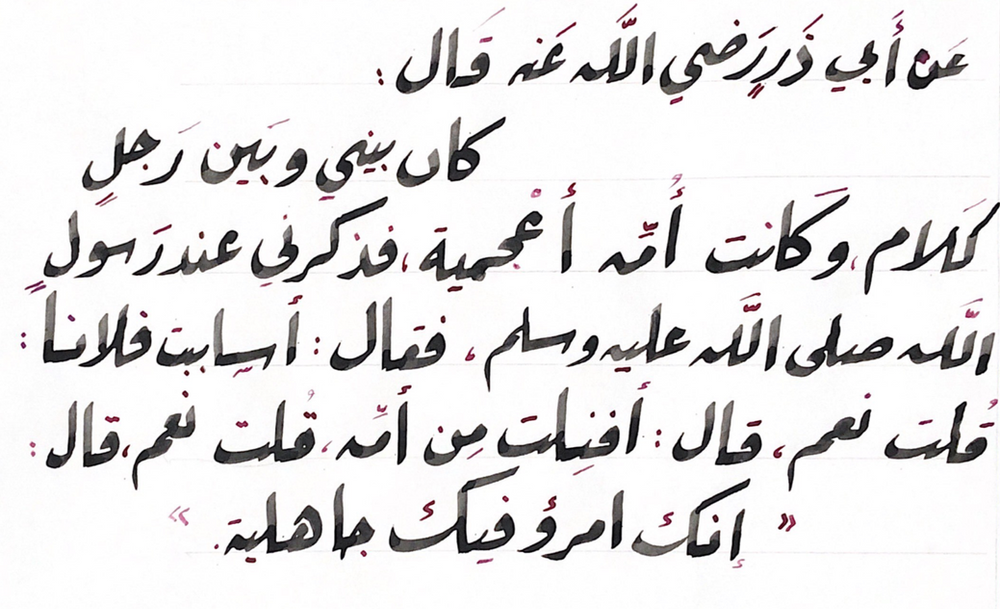 عَن أَبي ذَرٍ رَضي اللَّه عَنه قَال :
كان بيني وبَين رَجلٍ
كَلام، وكَانت أُمّه أعْجمية، فذكرني عند رَسولِ
اللَّه صلى اللَّه عليه وسلم، فقال : أساببت فلانا :
قُلت نعم، قال : أفنِلت مِن أمّه، قُلت نعم، قال :
« إنك امرؤ فيك جاهلية. »